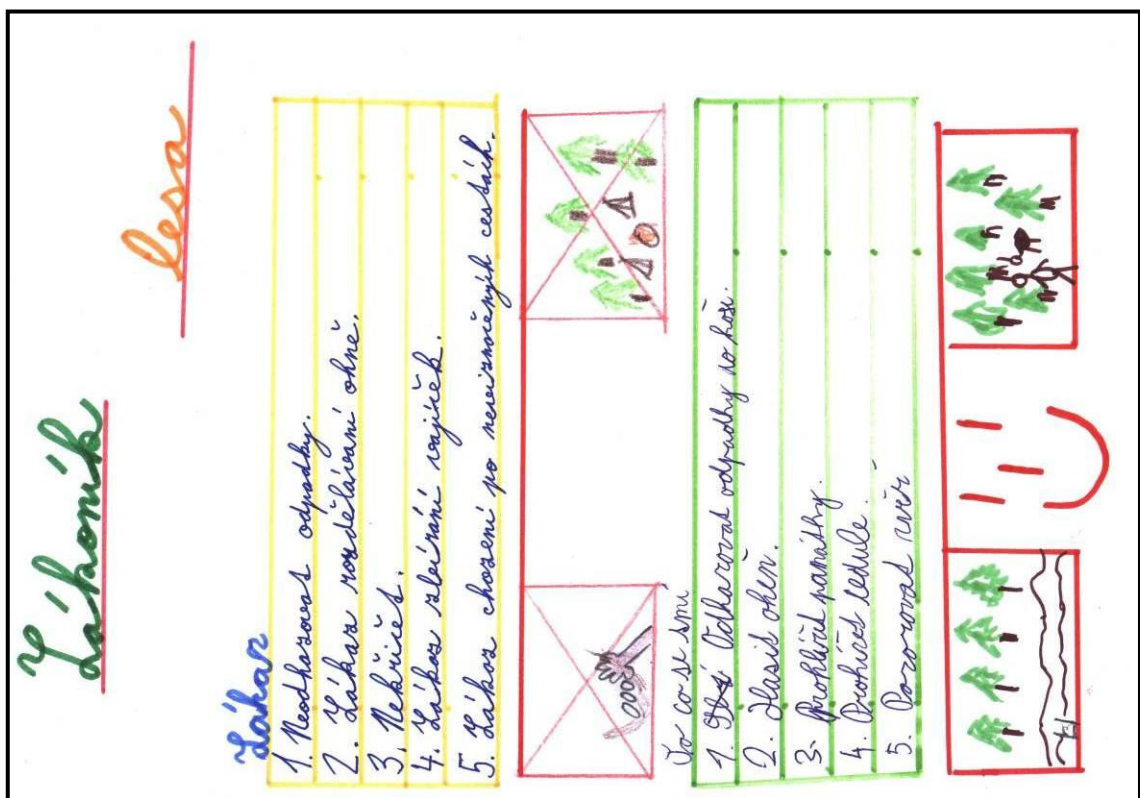 Zákoník lesa
Zákaz
1. Neodhazovat odpadky.
2. Zákaz rozdělávání ohně.
3. Nekřičet.
4. Zákaz zbírání vajíček.
5. Zákaz chození po cestách.
To co se smí
1. Odhazovat odpadky do koše.
2. Hlasit oheň.
3. Prohlížet památky.
4. cedule.
5. Pozorovat zvěř